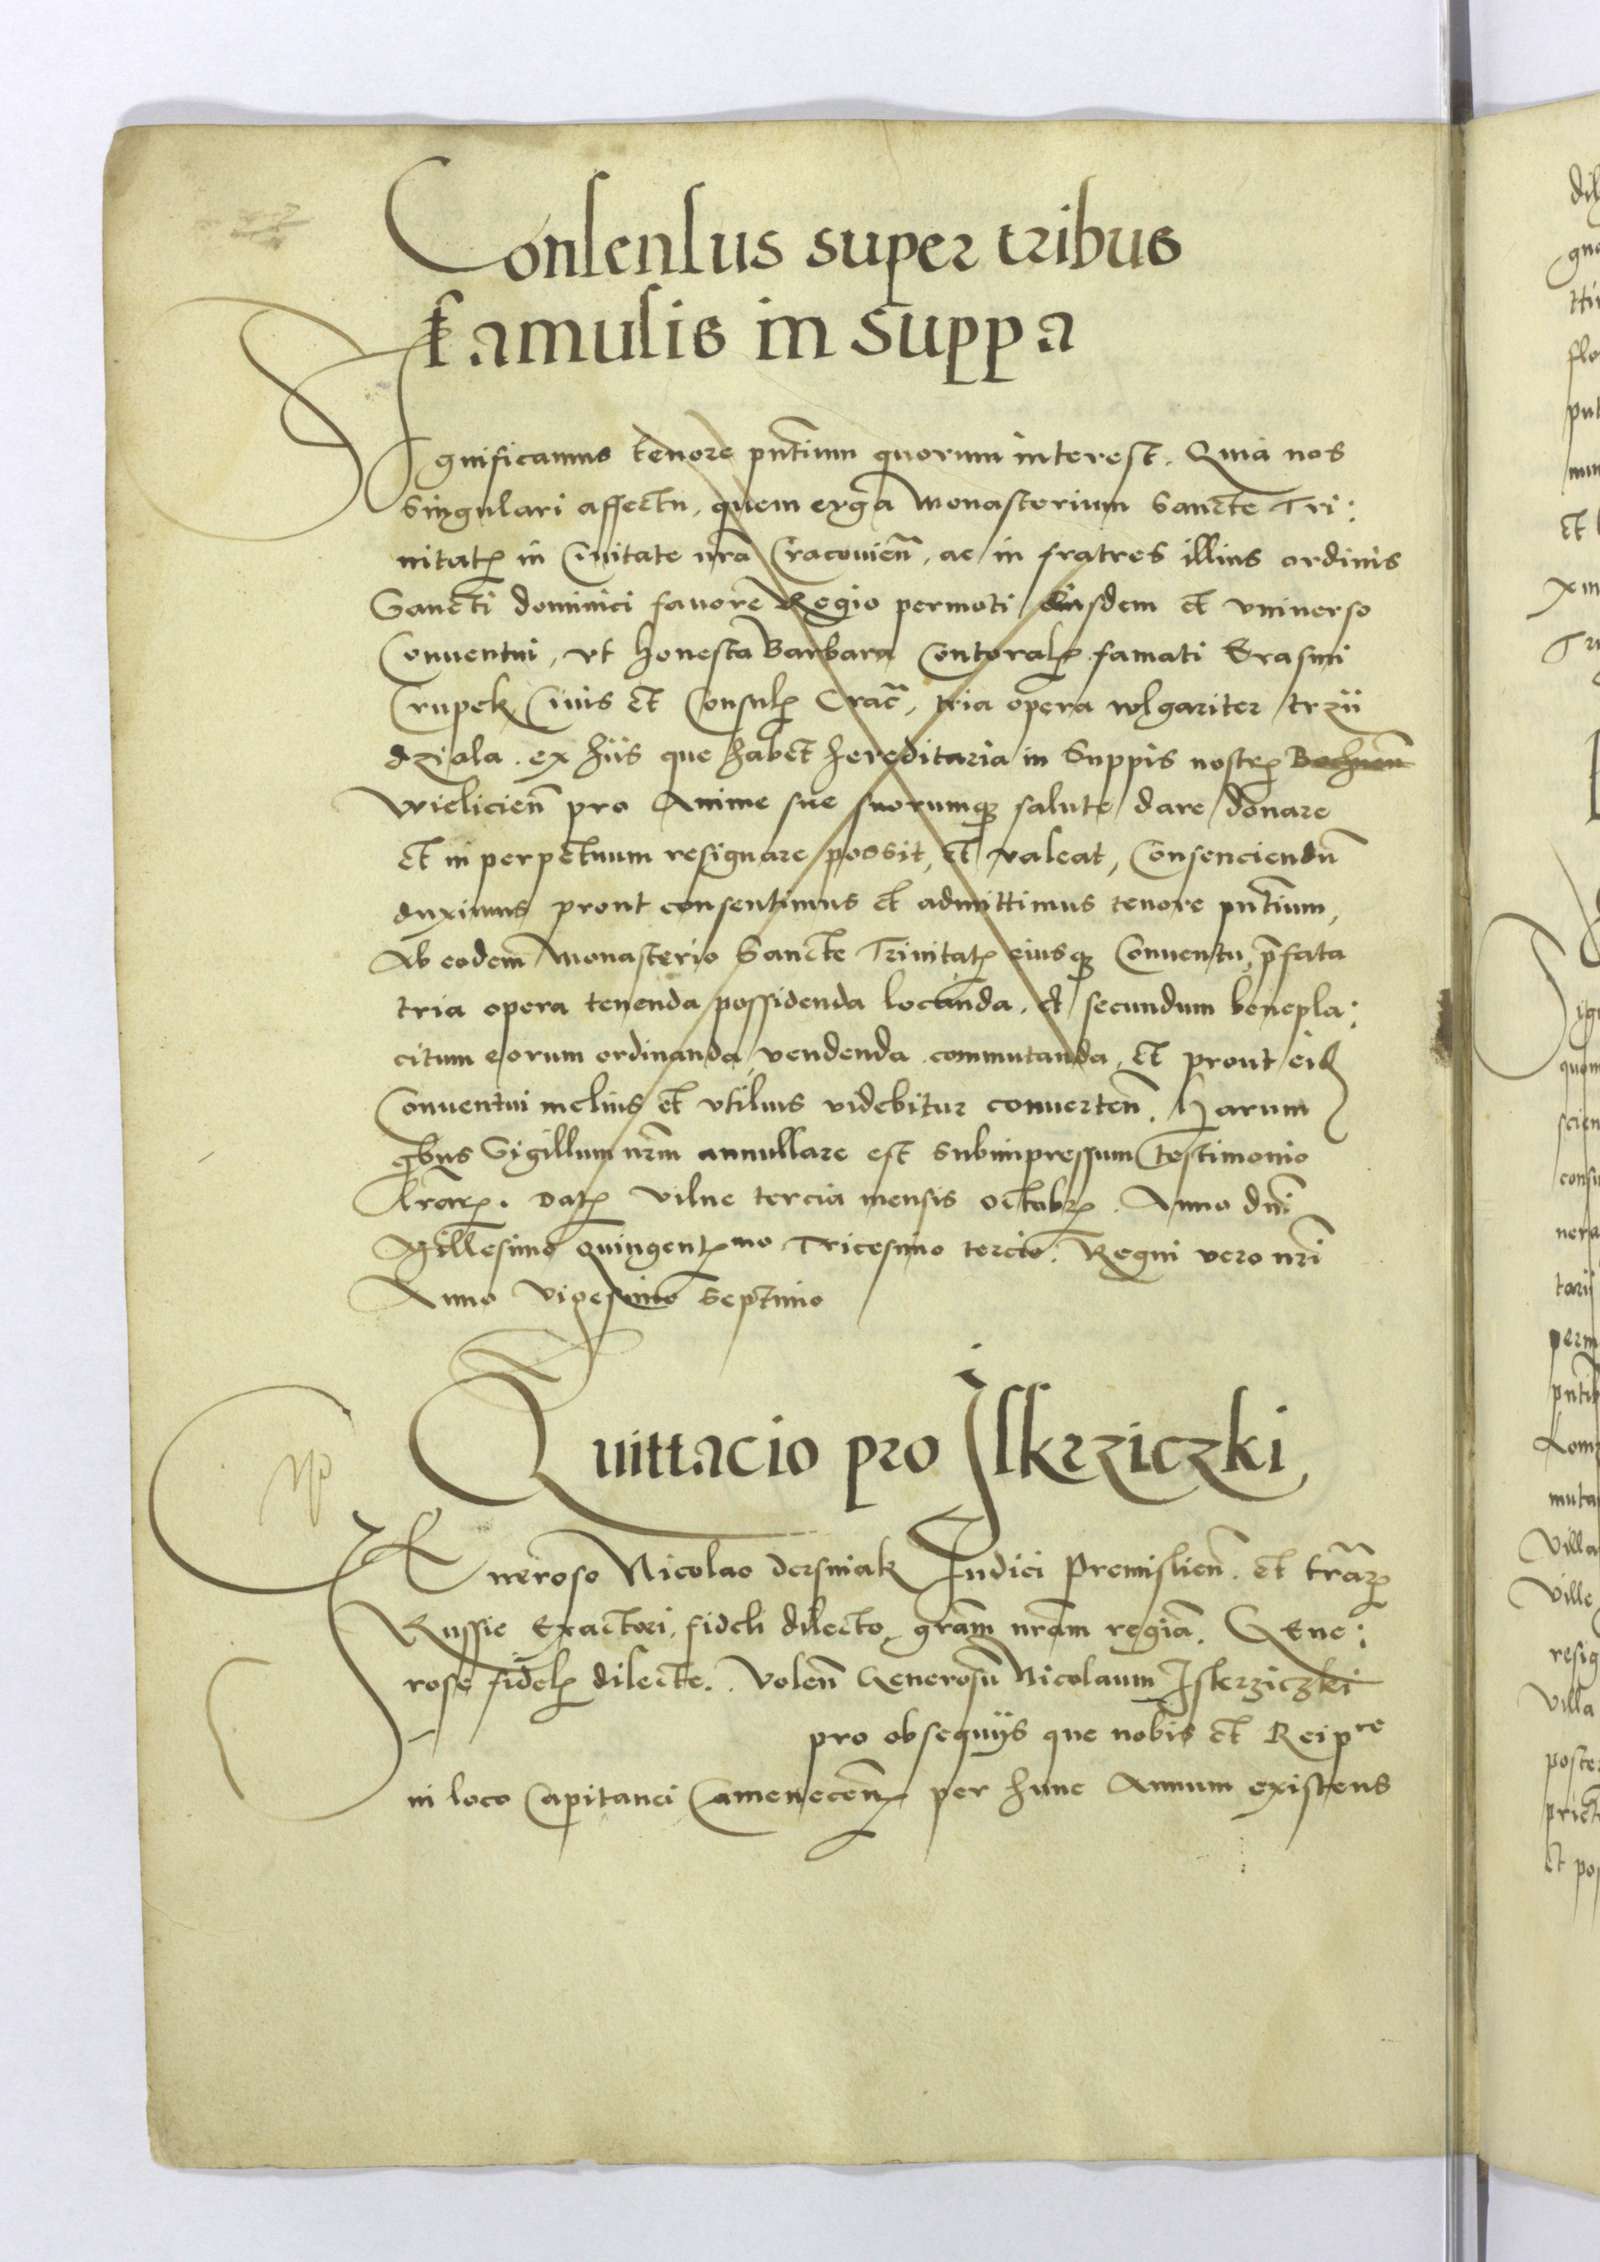 Consensus super tribus
famulis in suppa
Significamus tenore pntium quorum interest. Quia nos
Singulari affectu, quem erga Monasterium Sancte Tri:
nitatis in Civitate nra Cracovien, ac in fratres illius ordinis
Sancti dominici favore Regio permoti eiusdem et universo
Conventui, ut honesta Barbara Contoralis famati Erasmi
Crupek Civis et Consulis Crac, tria opera wlgariter trzii
dziala. ex hiis que habet hereditaria in Suppis nostris Bochnen
Wielicien pro Anime sue suorumque salute dare donare
et in perpetuum resignare possit, et valeat, Consenciendu
duximus prout consentimus et admittimus tenore pntium,
Ab eodem Monasterio Sancte Trinitatis eiusque Conventu, pfata
tria opera tenenda possidenda locanda, et secundum benepla:
citum eorum ordinanda, vendenda commutanda, et prout eid
Conventui melius et utilius videbitur converten. Harum
qbus Sigillum nrm annullare est subimpressum testimonio
lrarum. Datum Vilne tercia mensis Octobris. Anno dni
Millesimo Quingentmo Tricesimo tercio. Regni vero nri
Anno Vigesimo Septimo
Quittacio pro Iskrziczki
Generoso Nicolao Dersniak Iudici Premislien. et trarum
Russie Exactori, fideli dilecto, gram nram regia. Gene:
rose fidelis dilecte. Volen Generosu Nicolaum Iskrziczki
pro obsequiis que nobis et Reipce
in loco Capitanei Camenecen per hunc Annum existens